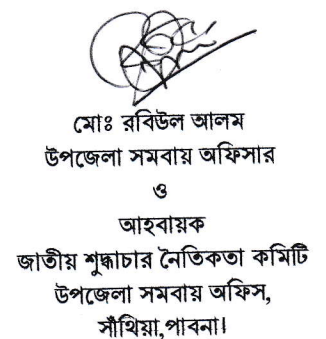 মোঃ রবিউল আলম
উপজেলা সমবায় অফিসার
ও
আহবায়ক
জাতীয় শুদ্ধাচার নৈতিকতা কমিটি
উপজেলা সমবায় অফিস,
সাঁথিয়া,পাবনা।